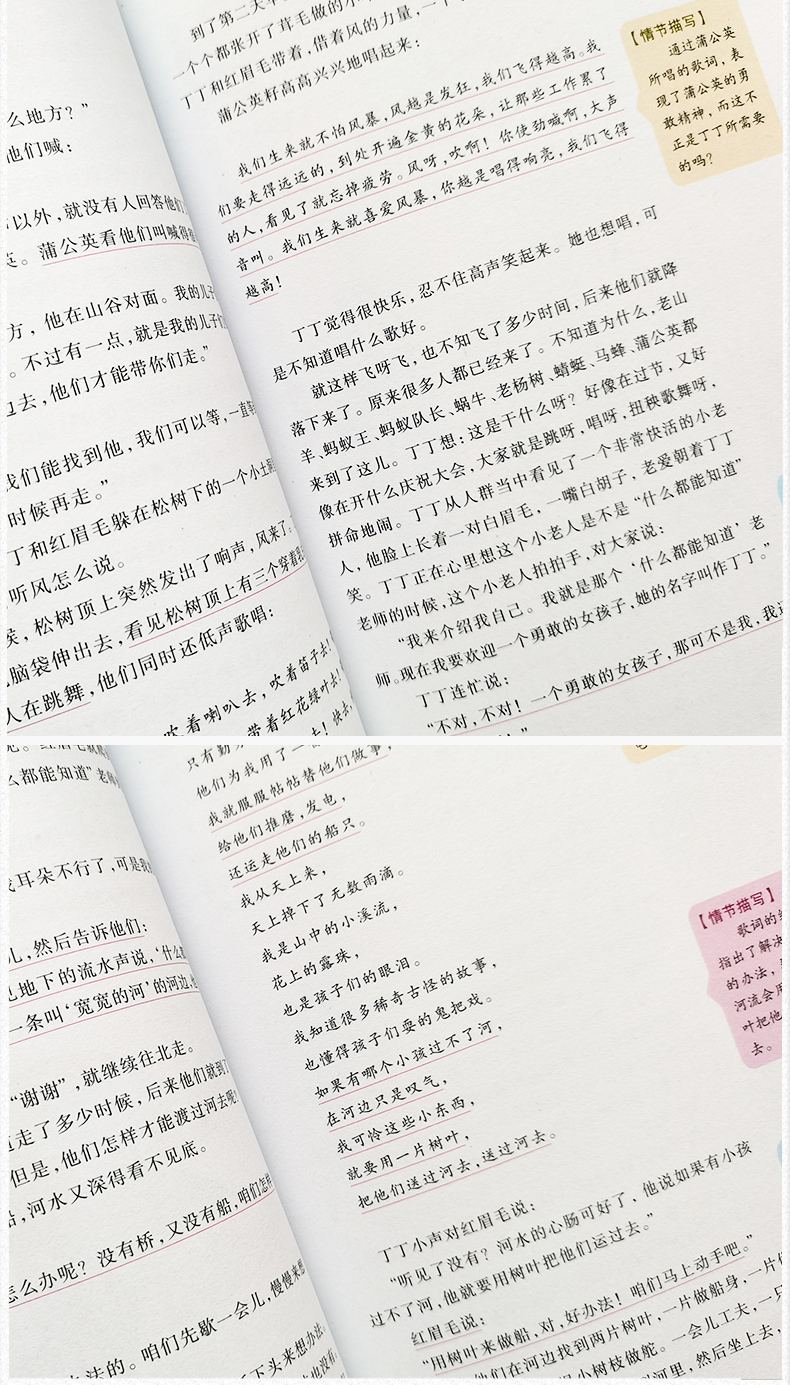 么地方？”
他们喊：
以外，就没有人回答他们
。蒲公英看他们叫喊得
方，他在山谷对面。我的儿子
。不过有一点，就是我的儿子
过去，他们才能带你们走。”
我们能找到他，我们可以等，一直
时候再走。”
丁和红眉毛躲在松树下的一个小土
听风怎么说。
，松树顶上突然发出了响声，风来了。
脑袋伸出去，看见松树顶上有三个穿着
人在跳舞，他们同时还低声歌唱：
吹着喇叭去，吹着笛子去！
带着红花绿叶去！
去！快去，
到了第二天
一个个都张开了茸毛做的小
丁丁和红眉毛带着，借着风的力量，一个
蒲公英籽高高兴兴地唱起来：
我们生来就不怕风暴，风越是发狂，我们飞得越高。我
们要走得远远的，到处开遍金黄的花朵，让那些工作累了
的人，看见了就忘掉疲劳。风呀，吹啊！你使劲喊啊，大声
音叫。我们生来就喜爱风暴，你越是唱得响亮，我们飞得
越高！
丁丁觉得很快乐，忍不住高声笑起来。她也想唱，可
是不知道唱什么歌好。
就这样飞呀飞，也不知飞了多少时间，后来他们就降
落下来了。原来很多人都已经来了。不知道为什么，老山
羊、蚂蚁王、蚂蚁队长、蜗牛、老杨树、蜻蜓、马蜂、蒲公英都
来到了这儿。丁丁想：这是干什么呀？好像在过节，又好
像在开什么庆祝大会，大家就是跳呀，唱呀，扭秧歌舞呀，
拼命地闹。丁丁从人群当中看见了一个非常快活的小老
人，他脸上长着一对白眉毛，一嘴白胡子，老爱朝着丁丁
笑。丁丁正在心里想这个小老人是不是“什么都能知道”
老师的时候，这个小老人拍拍手，对大家说：
“我来介绍我自己。我就是那个‘什么都能知道’老
师。现在我要欢迎一个勇敢的女孩子，她的名字叫作丁丁。”
丁丁连忙说：
“不对，不对！一个勇敢的女孩子，那可不是我，我
【情节描写】
通过蒲公英
所唱的歌词，表
现了蒲公英的勇
敢精神，而这不
正是丁丁所需要
的吗？
么都能知道”老师
耳朵不行了，可是我
儿，然后告诉他们：
见地下的流水声说，‘什么
一条叫‘宽宽的河’的河边，
“谢谢”，就继续往北走。
走了多少时候，后来他们就到了
但是，他们怎样才能渡过河去呢？
船，河水又深得看不见底。
怎么办呢？没有桥，又没有船，咱们怎
办法的。咱们先歇一会儿，慢慢来想
下头来想办法。
也没有。
只有勤
他们为我用了一
我就服服帖帖替他们做事，
给他们推磨，发电，
还运走他们的船只。
我从天上来，
天上掉下了无数雨滴。
我是山中的小溪流，
花上的露珠，
也是孩子们的眼泪。
我知道很多稀奇古怪的故事，
也懂得孩子们耍的鬼把戏。
如果有哪个小孩过不了河，
在河边只是叹气，
我可怜这些小东西，
就要用一片树叶，
把他们送过河去，送过河去。
丁丁小声对红眉毛说：
“听见了没有？河水的心肠可好了，他说如果有小孩
过不了河，他就要用树叶把他们运过去。”
红眉毛说：
“用树叶来做船，对，好办法！咱们马上动手吧。”
他们在河边找到两片树叶，一片做船身，一片
小树枝做舵。一会儿工夫，一只
河里，然后坐上去，
【情节描写】
歌词的
指出了解决
的办法，
河流会用
叶把他
去。